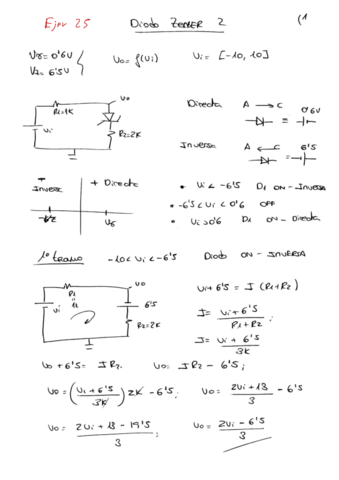 Ejer 25 Diodo ZENER 2 (1
Vγ = 0'6V
Vz = 6'5V
Vo = f(Vi) Vi = [-10, 10]
Vo
R1=1K
R2=2K
Vi
Directa A → C 0'6V
Inversa A ← C 6'5
- Inversa + Directa
-Vz Vγ
• Vi < -6'5 D1 ON - Inversa
• -6'5 < Vi < 0'6 OFF
• Vi > 0'6 D1 ON - Directa
1º tramo -10 < Vi < -6'5 Diodo ON - INVERSA
R1
Vo
Vi
6'5
R2=2K
Vi + 6'5 = I (R1+R2)
I = Vi + 6'5 / R1 + R2 ;
I = Vi + 6'5 / 3K
Vo + 6'5 = I R2. Vo = I R2 - 6'5 ;
Vo = (Vi + 6'5 / 3K) 2K - 6'5 ; Vo = 2Vi + 13 / 3 - 6'5
Vo = 2Vi + 13 - 19'5 / 3 ; Vo = 2Vi - 6'5 / 3